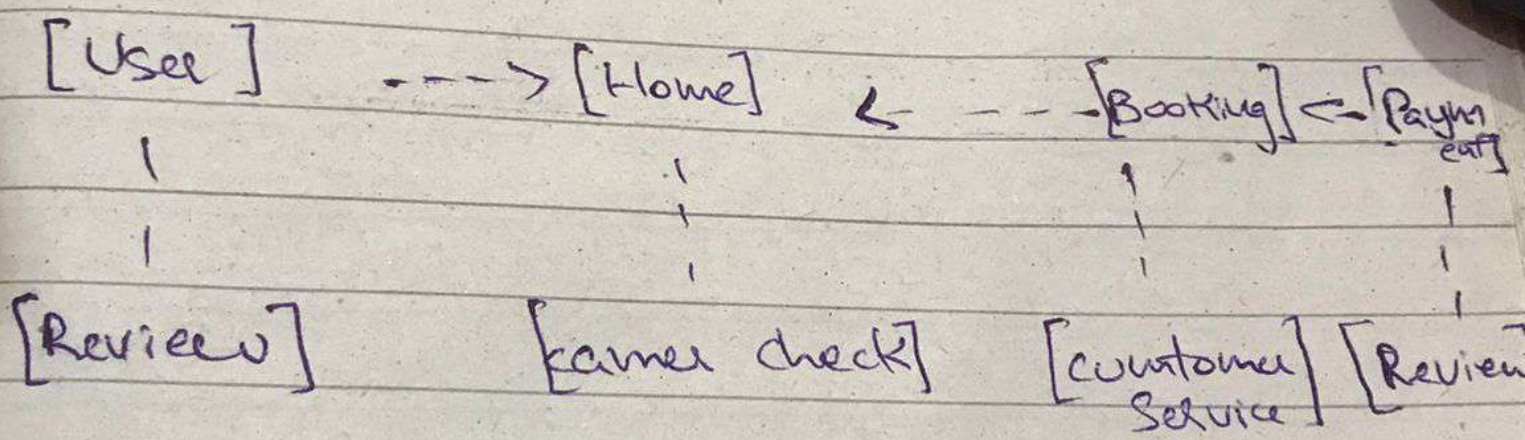 [User] ----> [Home] <- - - - [Booking] <- [Paym
ent]
[Review] [camer check] [cumtomer [Review
Service]